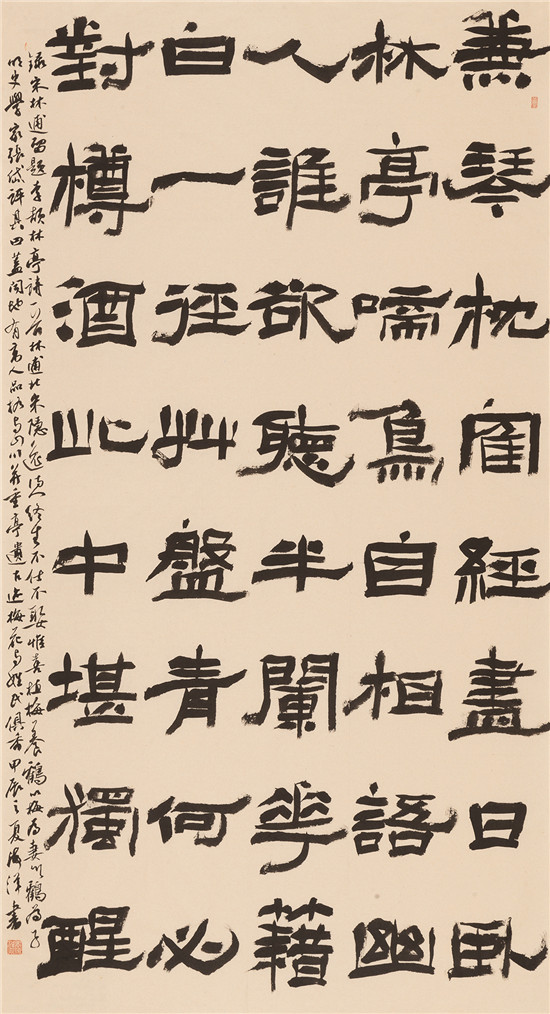 兼琴枕寉經盡日臥
林亭啼鳥自相語幽
人誰欲聽半闌華籍
白一徑艸盤青何必
對樽酒此中堪獨醒
錄宋林逋留題李頡林亭詩一首林逋北宋隱逸詩人終生不仕不娶惟喜植梅養鶴以梅為妻以鶴為子
明史學家張岱評其曰蓋聞地有高人品格與山川並重亭遺古迹梅花與姓氏俱香甲辰之夏海洋書